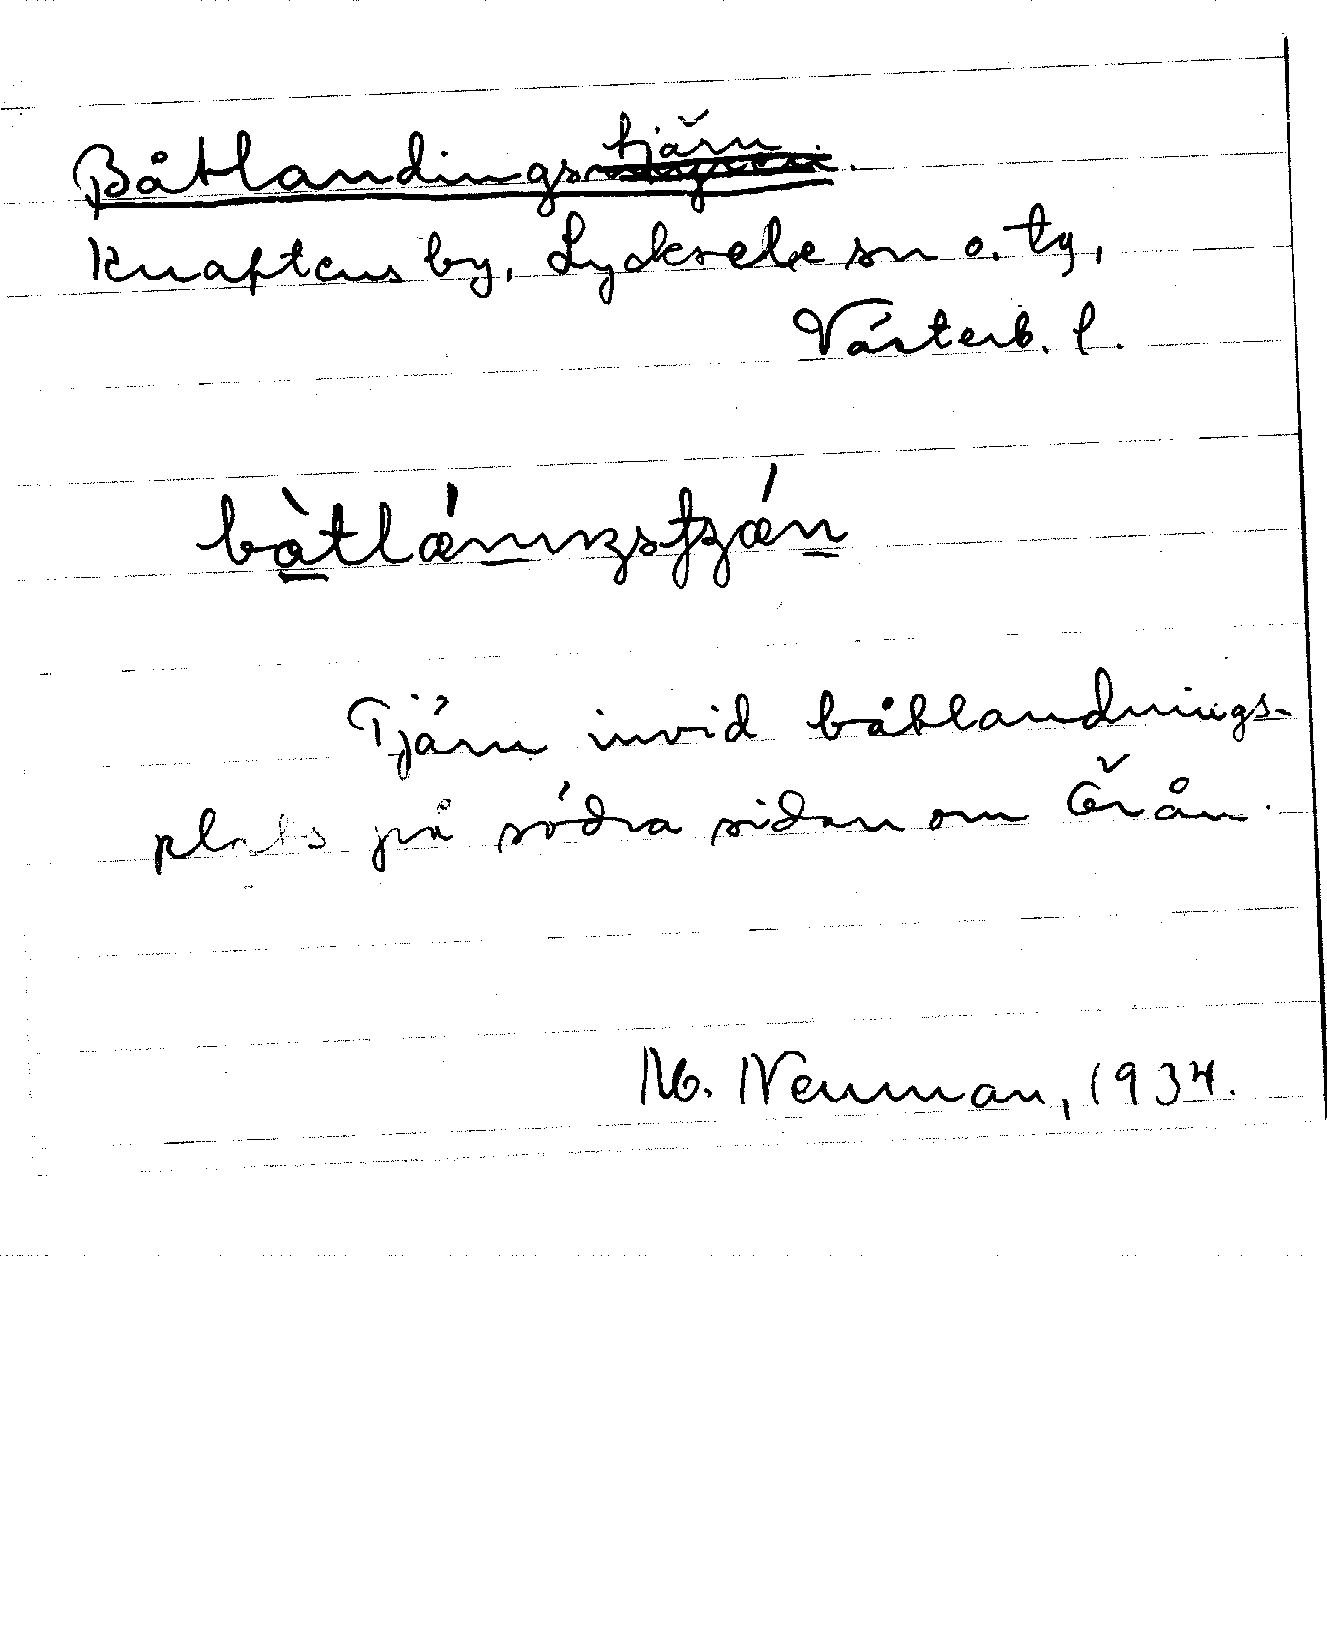 Båtlandingstjärn.
Knaftens by, Lycksele sn o. tg,
Västerb. l.
Tjärn invid båtlandnings-
plats på södra sidan om Örån.
M. Neuman, 1934.